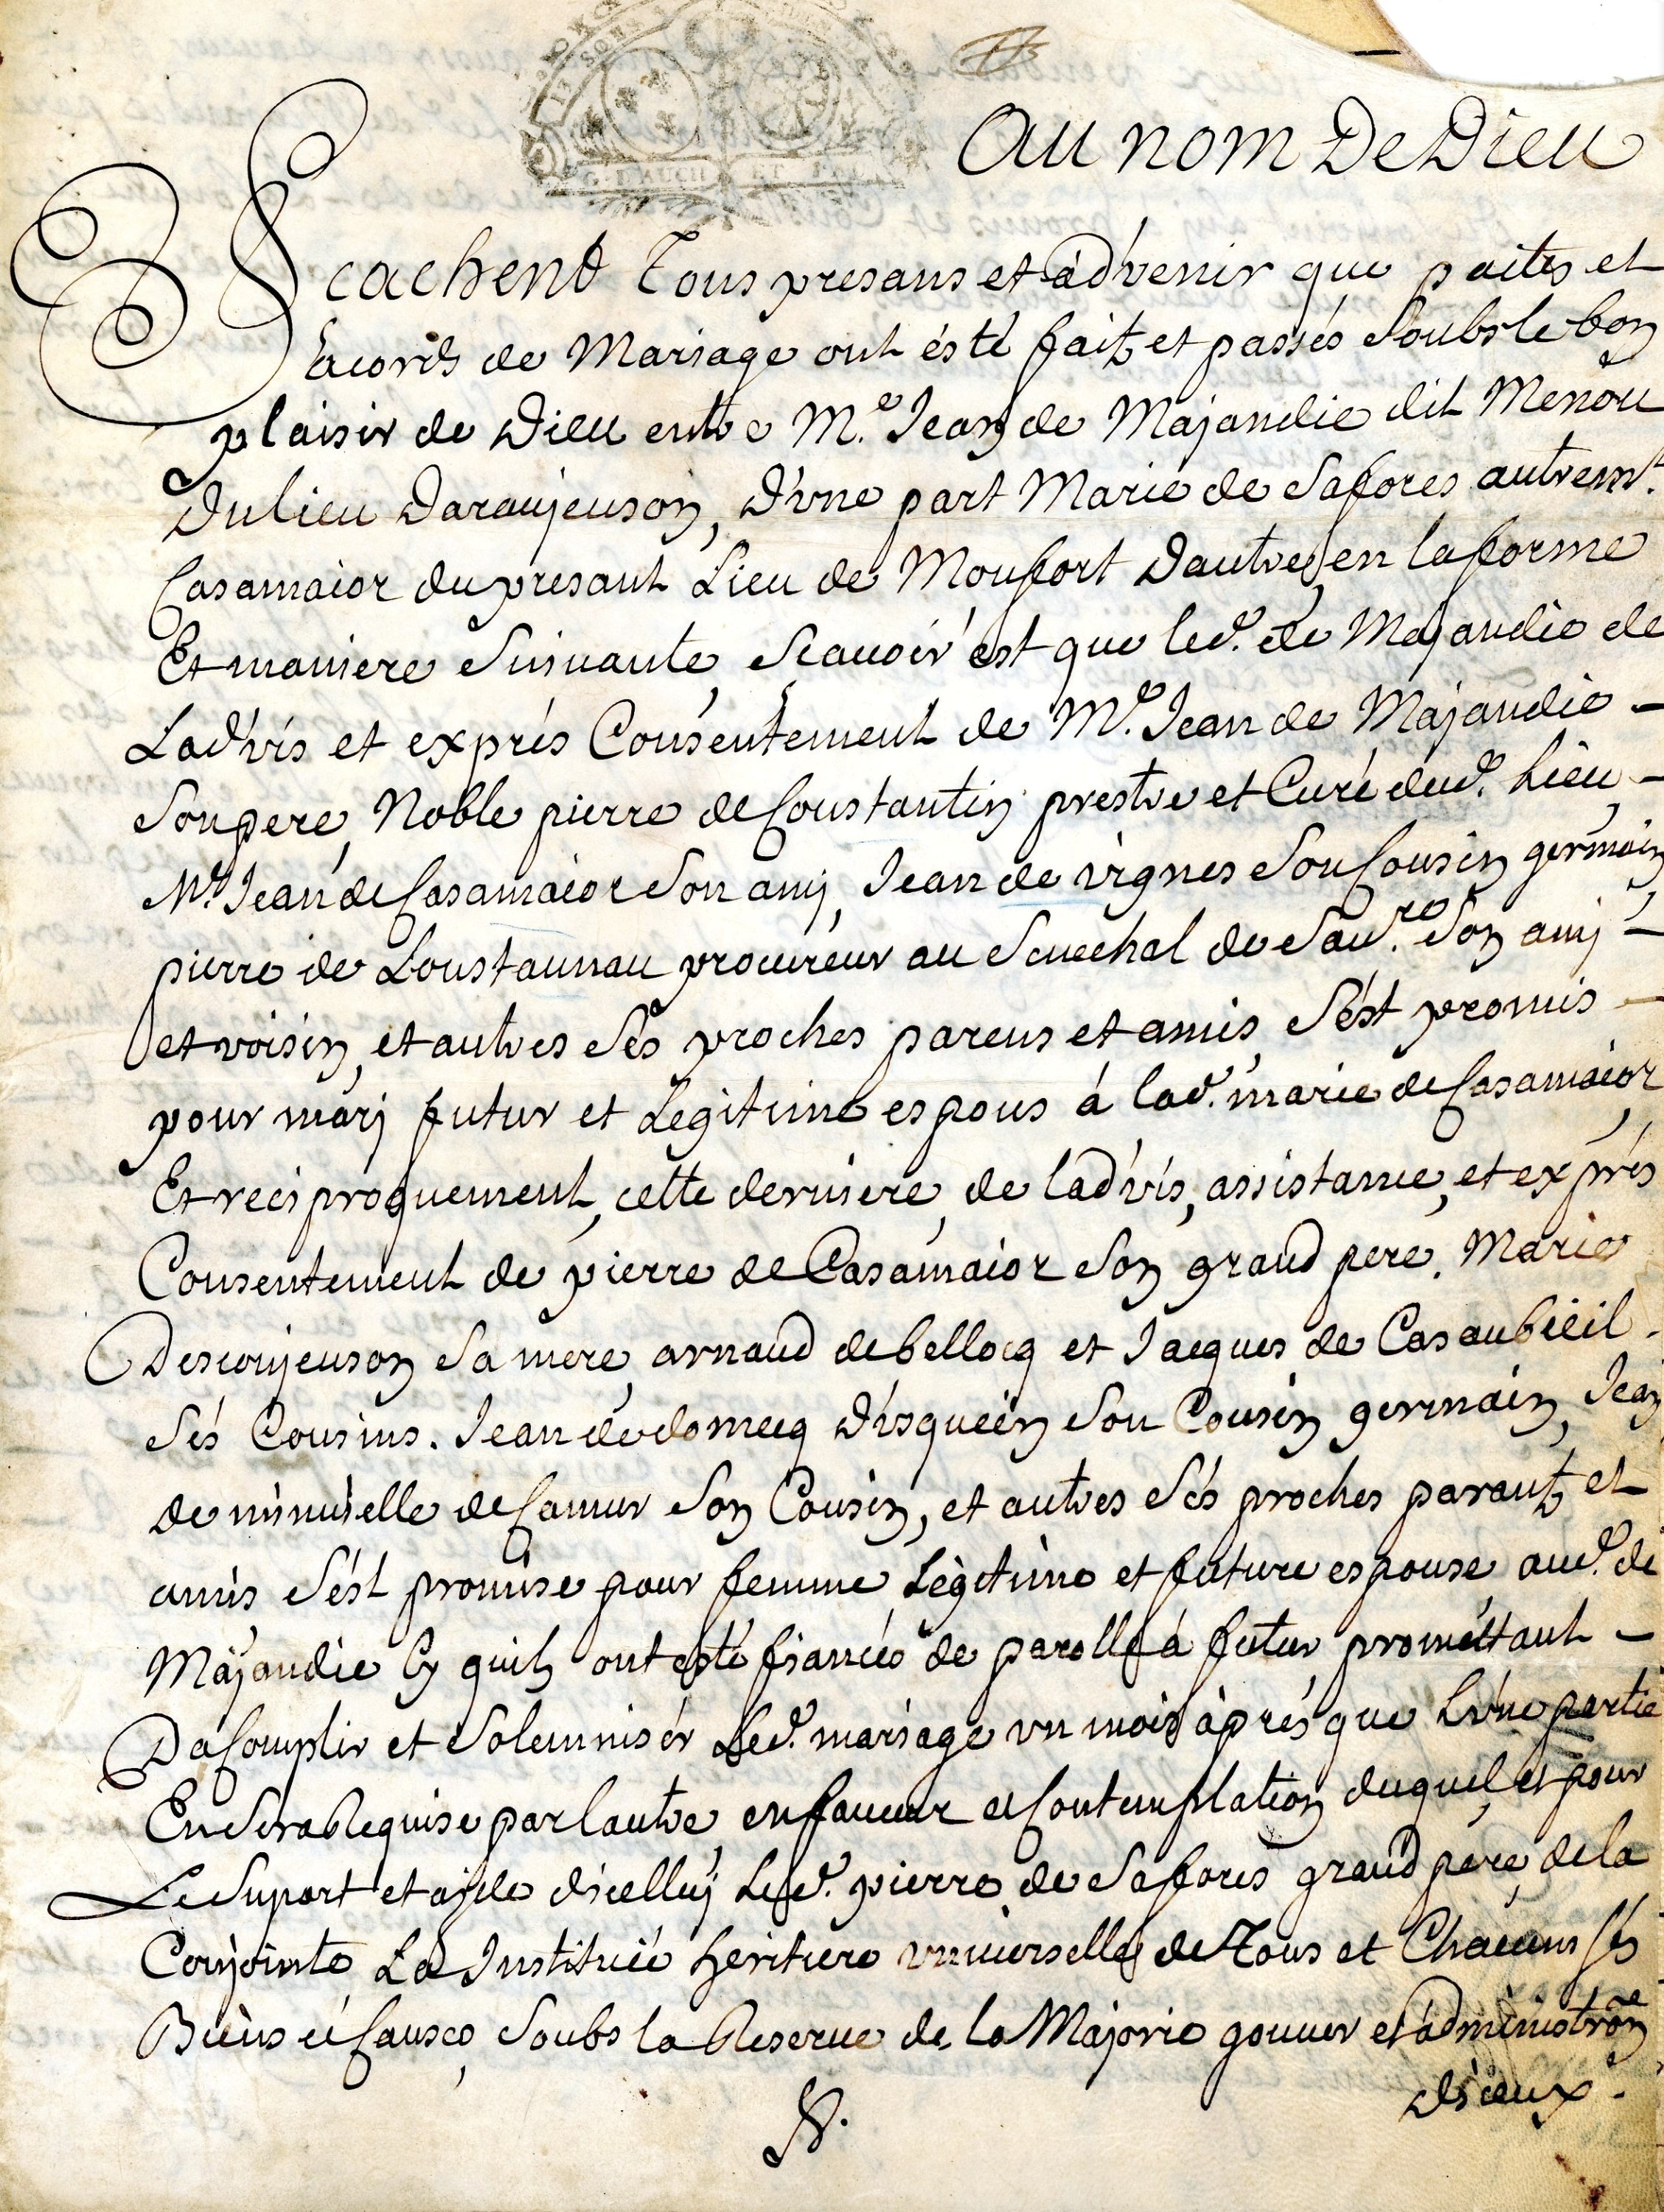 G. D'AUCH ET PAU
Au nom De Dieu
Scachent Tous presans et advenir que paites et
acords de Mariage ont ésté faitz et passés soubs le bon
plaisir de Dieu entre Me. Jean de Majandie dit Menou
Du lieu Daraujeuson, D'vne part Marie de Safores autremt.
Casamaior du presant Lieu de Monfort Dautre, en la forme
Et maniere Suivante, Scauoir est que led. de Majandie de
Ladvis et exprés Consentement de Me. Jean de Majandie -
Son pere, Noble pierre de Constantin prestre et Curé dud. Lieu -
Me. Jean de Casamaior Son amj, Jean de vignes Son Cousin germain,
pierre de Loustaunau procureur au Senechal de Sauv.re Son amj -
et voisin, et autres Sés proches parens et amis, S'ést promis -
pour marj futur et Legitime espous á lad. marie de Casamaior,
Et reciproquement, cette derniere, de l'advis, assistance, et exprés
Consentement de pierre de Casamaior Son grand pere, Marie
Desconjeuson Sa mere, arnaud de bellocq et Jacques de Casaubieil.
Sés Cousins. Jean de domecq D'isquein Son Cousin germain, Jean
de mimielle de Camur Son Cousin, et autres Sés proches parantz et
amis S'ést promise pour femme Légitime et future espouse aud. de
Majandie Cy quilz ont esté fiancés de parolle á futur promettant -
Dacomplir et Solemniser Led. mariage vn mois áprés que L'vne partie
En Sera Requise par lautre, en faueur et Contemplation duquel, et pour
Le Suport et ayde d'icelluj Led. pierre de Safores grand pére, de la
Conjointe La Instituée heritiere vniuerselle de Tous et Chacuns Sés
Biens et Causes, Soubs la Reserue de la Majorie gouuer et administraõn
d'iceux.